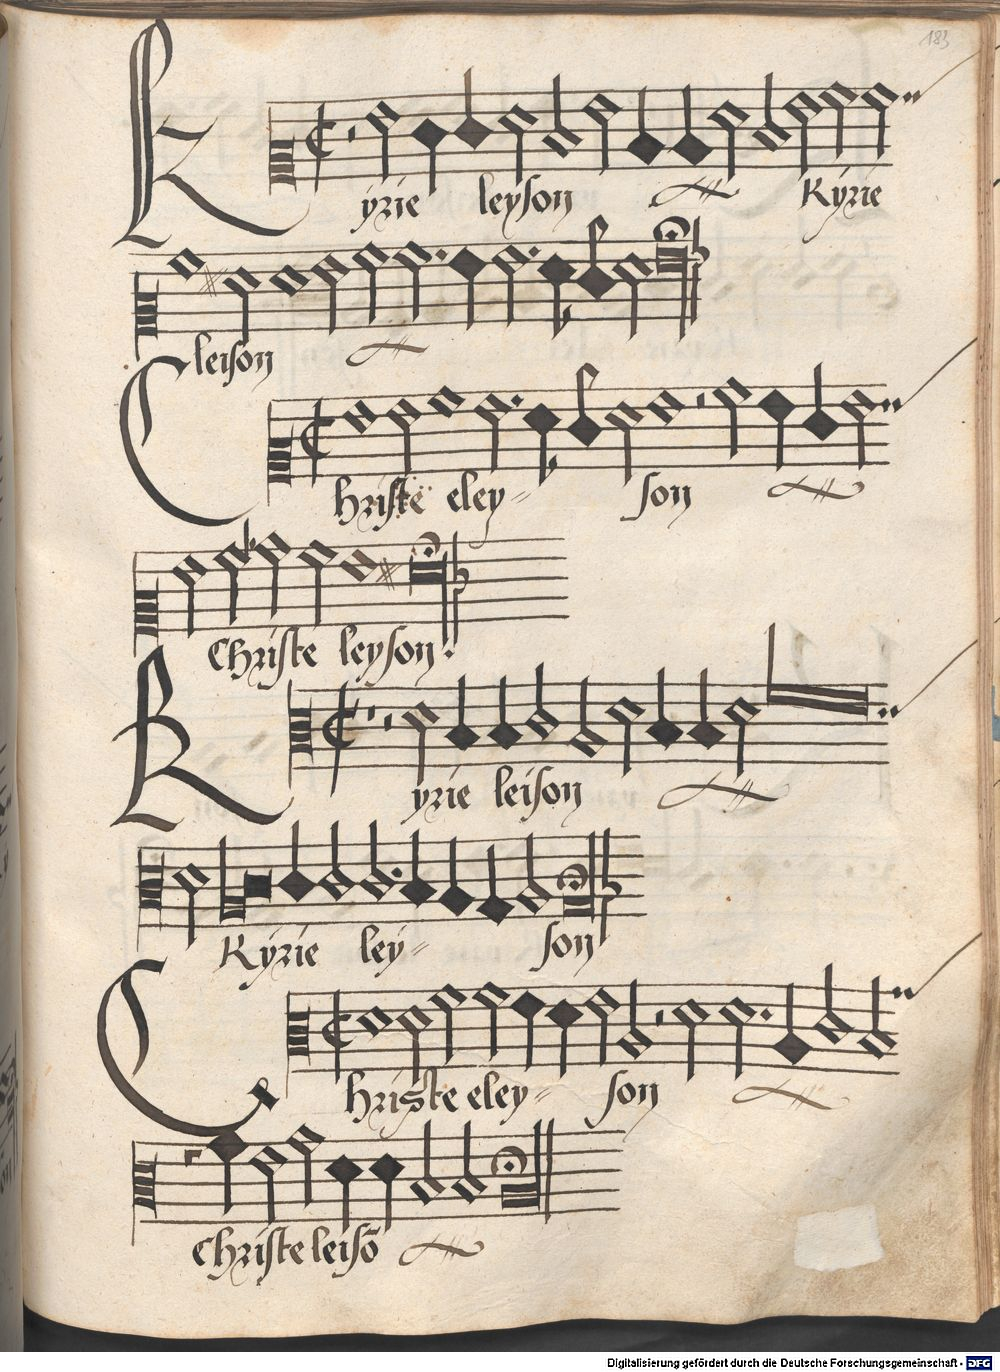 183
Kyrie leyson Kyrie
leison
Christe eley= son
Christe leyson.
Kyrie leison
Kyrie ley= son
Christe eley= son
Christe leisõ
Digitalisierung gefördert durch die Deutsche Forschungsgemeinschaft - DFG